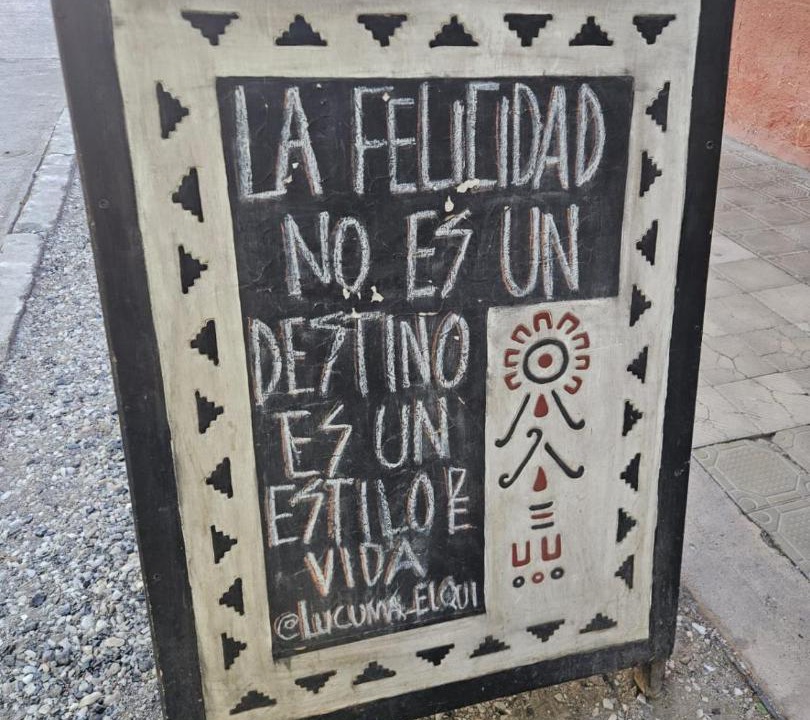 LA FELICIDAD
NO ES UN
DESTINO
ES UN
ESTILO DE
VIDA
@LUCUMA_ELQUI